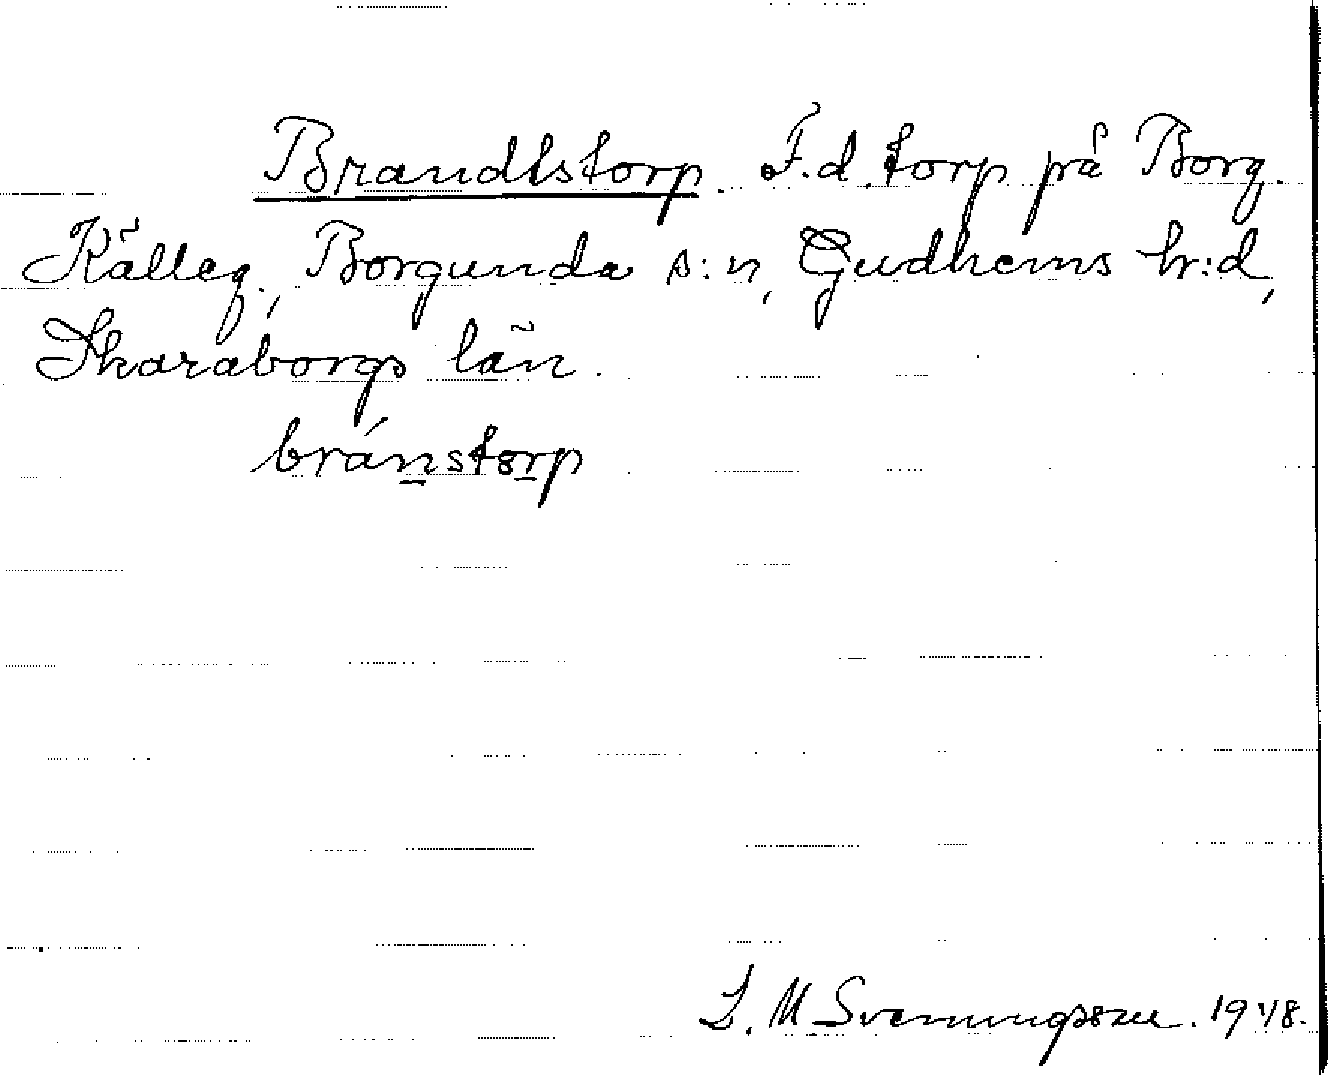 Brandtstorp. F.d. torp på Borg.
Källeg., Borgunda s:n, Gudhems hr:d,
Skaraborgs län.
bránstorp
S. M Svenungsson. 1948.